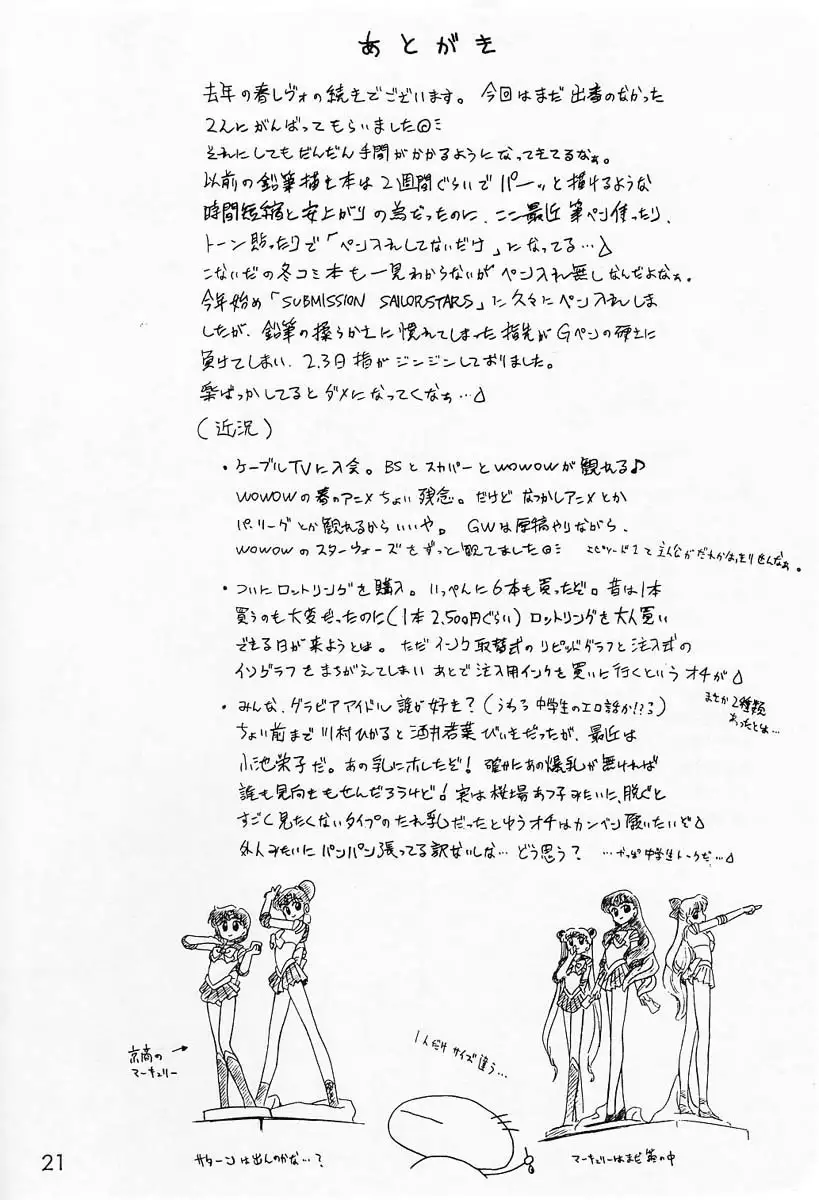 あとがき
去年の春レヴォの続きでございます。今回はまだ出番のなかった
2人にがんばってもらいました◎ミ
それにしてもだんだん手間がかかるようになってきてるなぁ。
以前の鉛筆描き本は2週間ぐらいでパーッと描けるような
時間短縮と安上がりの為だったのに、ここ最近筆ペン使ったり、
トーン貼ったりで「ペン入れしてないだけ」になってる…
こないだの冬コミ本も一見わからないがペン入れ無しなんだよなぁ。
今年始め「SUBMISSION SAILORSTARS」に久々にペン入れしま
したが、鉛筆の柔らかさに慣れてしまった指先がGペンの硬さに
負けてしまい、2,3日指がジンジンしておりました。
楽ばっかしてるとダメになってくなぁ…
(近況)
・ケーブルTVに入会。BSとスカパーとWOWOWが観れる♪
WOWOWの春のアニメちょい残念。だけどなつかしアニメとか
パ・リーグとか観れるからいいや。GWは原稿やりながら、
WOWOWのスターウォーズをずっと観てました◎ミ エピソード1て主人公がだれかはっきりせんなぁ。
・ついにロットリングを購入。いっぺんに6本も買ったぞ。昔は1本
買うのも大変だったのに(1本2,500円ぐらい)ロットリングを大人買い
できる日が来ようとは。ただインク取替式のリピッドグラフと注入式の
イソグラフをまちがえてしまいあとで注入用インクを買いに行くというオチが
まさか2種類
あったとは…
・みんな、グラビアアイドル誰が好き?(うわっ中学生のエロ話か!?)
ちょい前まで川村ひかると酒井若菜びいきだったが、最近は
小池栄子だ。あの乳にホレたぞ!確かにあの爆乳が無ければ
誰も見向きもせんだろうけど!実は桜場あつ子みたいに、脱ぐと
すごく見たくないタイプのたれ乳だったとゆうオチはカンベン願いたいぞ
外人みたいにパンパン張ってる訳ないしな…どう思う? …やっぱ中学生トークだ…
京商の
マーキュリー
1人だけサイズ違う…
サターンは出んのかな…?
マーキュリーはまだ箱の中
21